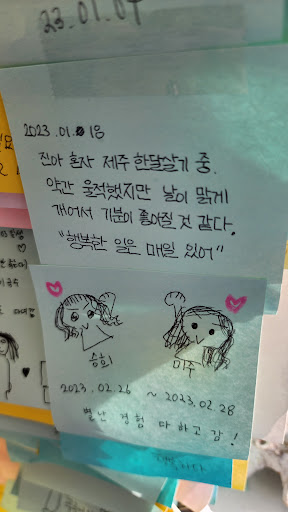 23.01.07
2023.01.18
진아 혼자 제주 한달살기 중.
약간 울적했지만 날이 맑게
개어서 기분이 좋아질 것 같다.
"행복한 일은 매일 있어"
승희 미주
2023.02.26 ~ 2023.02.28
별난 경험 다 하고 감!